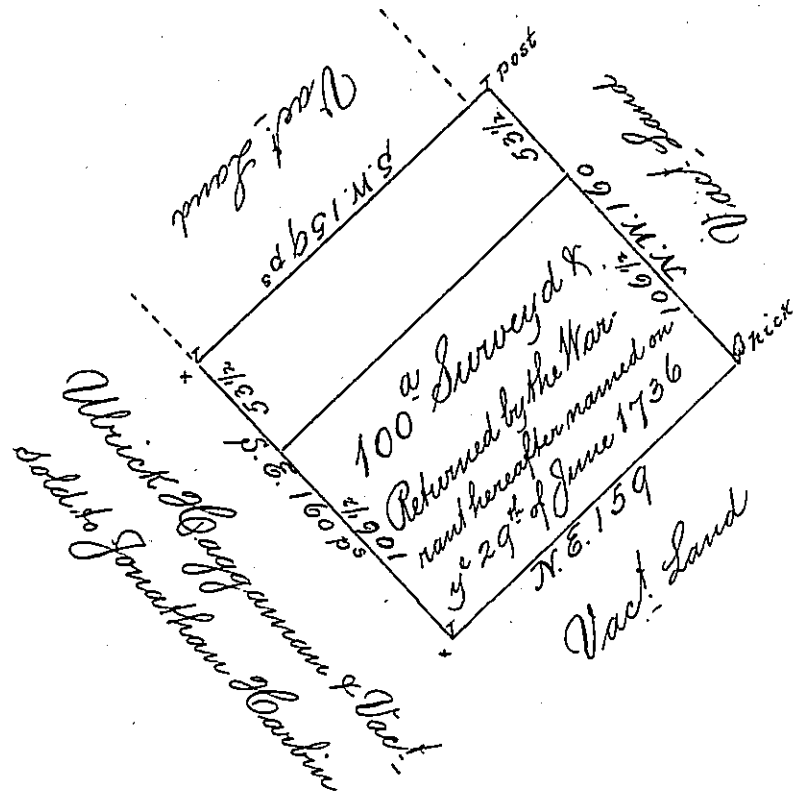 post
Vact. Land
Vact. Land
53½
S.W. 159 ps
N.W. 160
106½
100a Surveyd &
Returned by the War-
rant hereafter named on
ye 29th of June 1736
53½
S.E. 160 ps
106½
N.E. 159
Vact. Land
Ulrick Haggaman & Vact.
sold to Jonathan Harbin